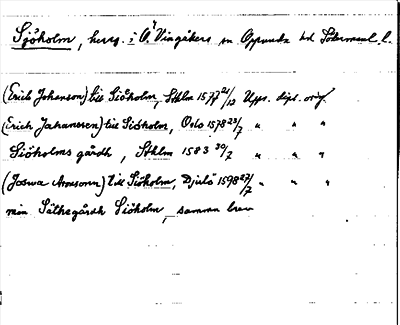 Sjöholm, herrg. i Ö. Vingåkers sn Oppunda hd Södermanl. l.
(Erich Johanson) till Siöholm, Sthlm 1577 21/12 Upps. dipl. orig.
(Erich Jahanssen) till Siöholm, Oslo 1578 23/7 " " "
Siöholms gårdh, Sthlm 1583 30/7 " " "
(Joswa Anesonn) till Siöholm, Djulö 1598 27/7 " " "
min Säthegårdh Siöholm, samma brev